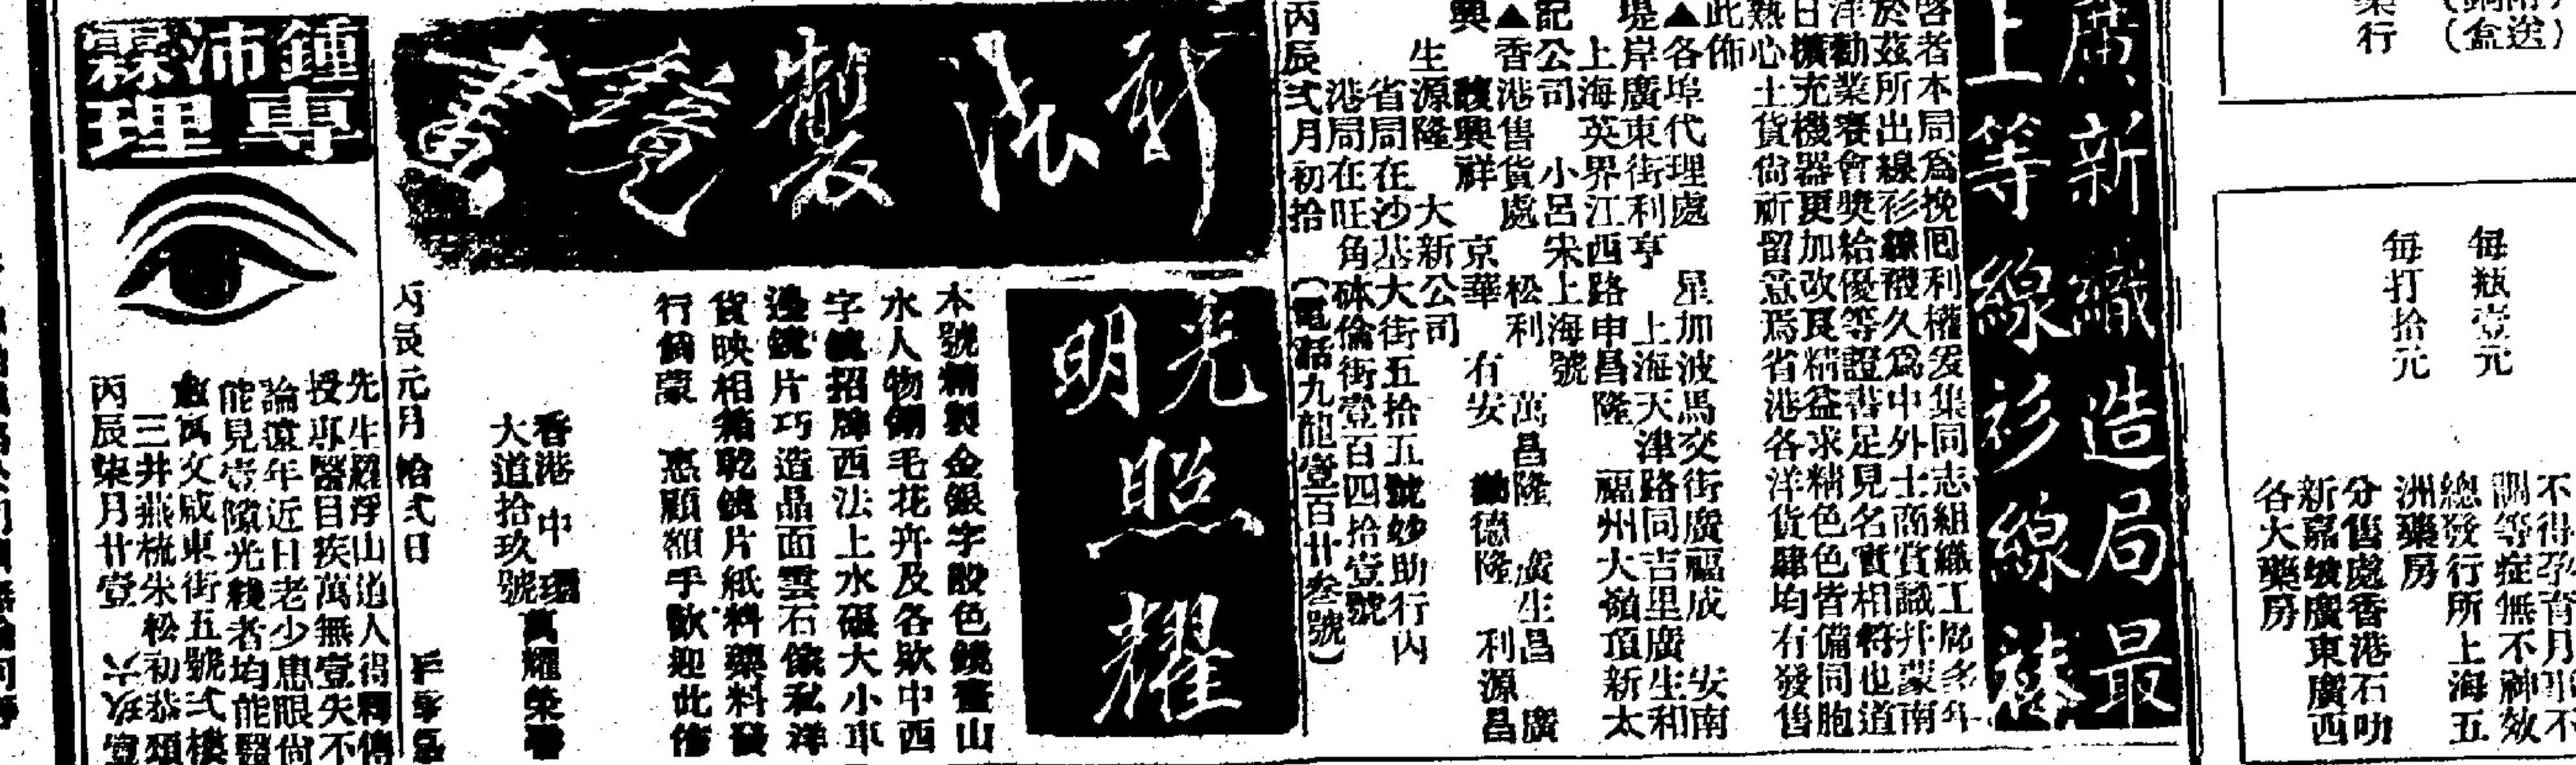 每瓶壹元
每打拾元
不得孕育月事不
調等症無不神效
總發行所上海五
洲藥房
分售處香港石叻
新嘉坡廣東廣西
各大藥房
廣新織造局最
上等線衫線襪
啓者本局爲挽囘利權爰集同志組織工廠多年
於茲所出線衫線襪久爲中外士商賞識幷蒙南
洋勸業賽會奬給優等證書足見名實相符也道
日擴充機器更加改良精益求精色色皆備同胞
熱心土貨尙祈留意焉省港各洋貨肆均有發售
此佈
▲各埠代理處 星加波馬交街廣福成 安南
堤岸廣東街利亨 上海天津路同吉里廣生和
上海英界江西路申昌隆 福州大嶺頂新太
記公司 小呂宋上海號
▲香港售貨處 松利 萬昌隆 廣生昌 廣
興 馥興祥 京華 有安 德隆 利源昌
生源隆 大新公司
省局在沙基大街五拾五號妙助行內
港局在旺角砵倫街壹百四拾壹號
丙辰弍月初拾 (電話九龍壹百廿叁號)
新法製
光明照耀
本號精製金銀字骰色鏡畫山
水人物翎毛花卉及各欵中西
字鏡招牌西法上水碾大小車
邊鏡片巧造晶面雲石傢私洋
貨映相箱乾鏡片紙料藥料發
行倘蒙 惠顧額手歡迎此佈
香港中環萬耀榮
大道拾玖號
丙辰元月拾弍日
鍾沛霖
專理
先生羅浮山道人得釋傳
授專醫目疾萬無壹失不
論遠年近日老少患眼尙
能見壹隙光綫者均能醫
愈寓文咸東街五號弍樓
三井燕梳朱松初恭頌
丙辰柒月廿壹